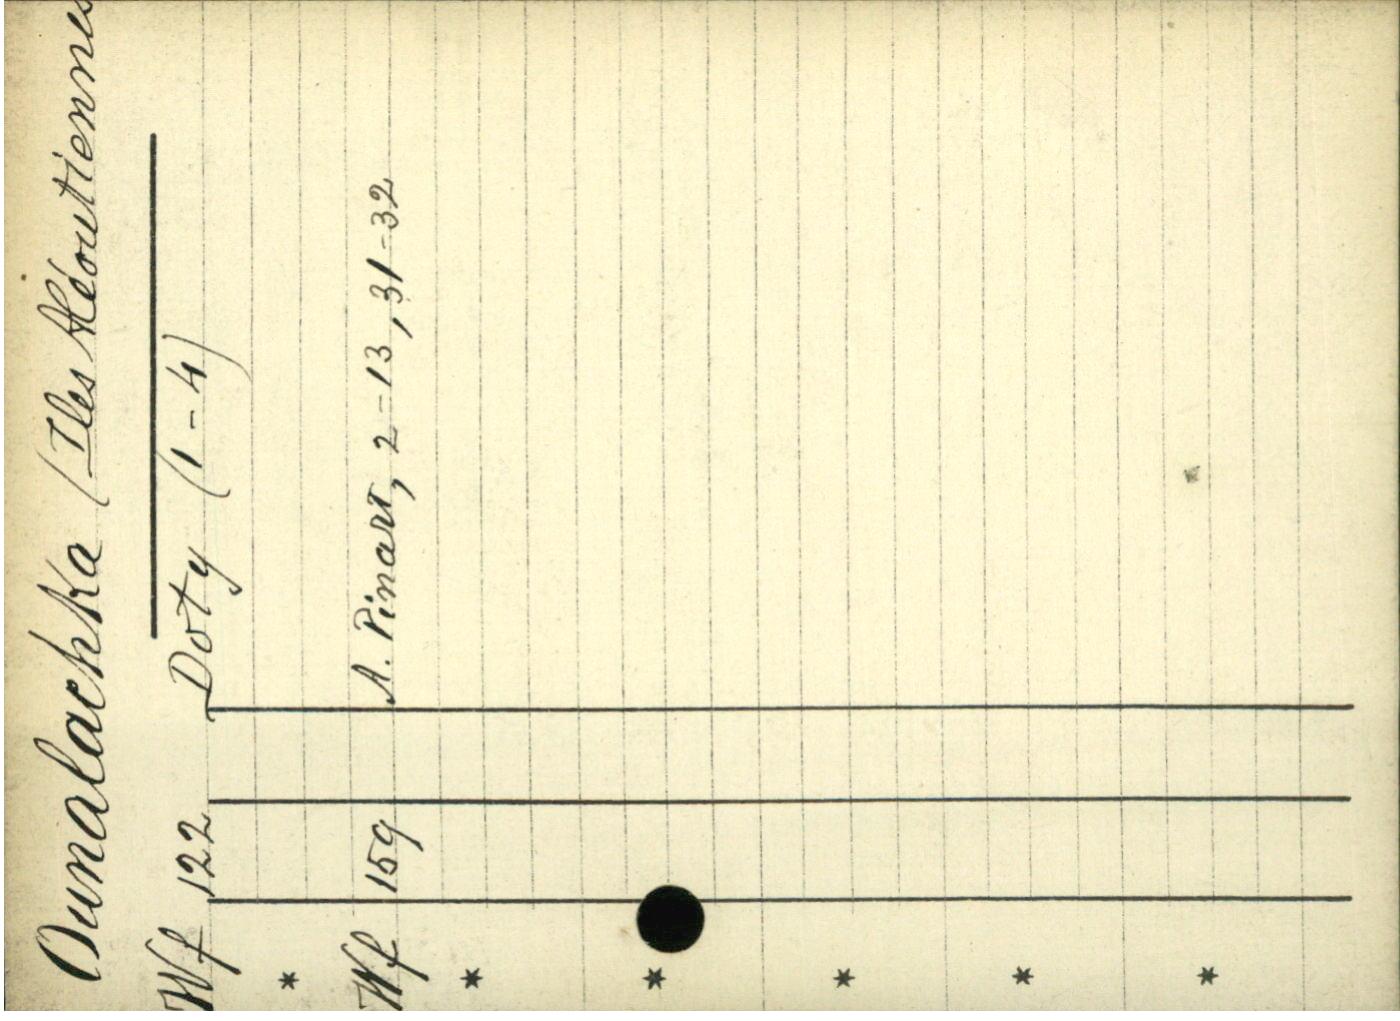 Ounalachka (Iles Aléoutiennes
Wf 122 Doty (1-4)
*
Wf 159 A. Pinart, 2-13, 31-32
*
*
*
*
*